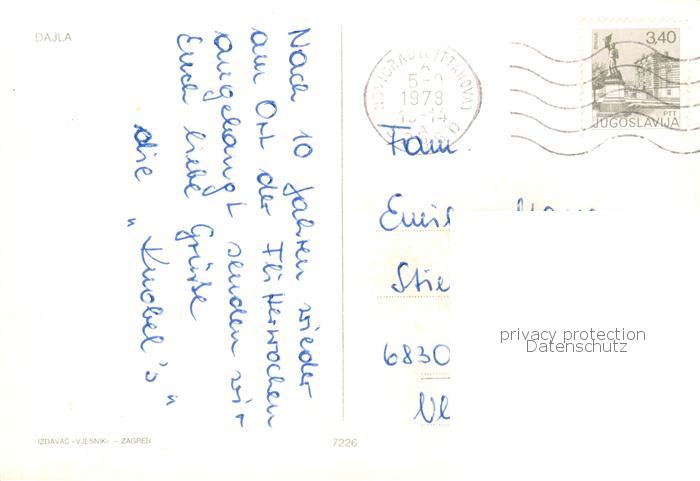 DAJLA
Nach 10 Jahren wieder
am Ort der Flitterwochen
angelangt senden wir
Euch liebe Grüße
die "Knobel's"
3,40
PTT
JUGOSLAVIJA
1978
Fam.
Stie
6830
privacy protection
Datenschutz
IZDAVAČ «VJESNIK» – ZAGREB
7226